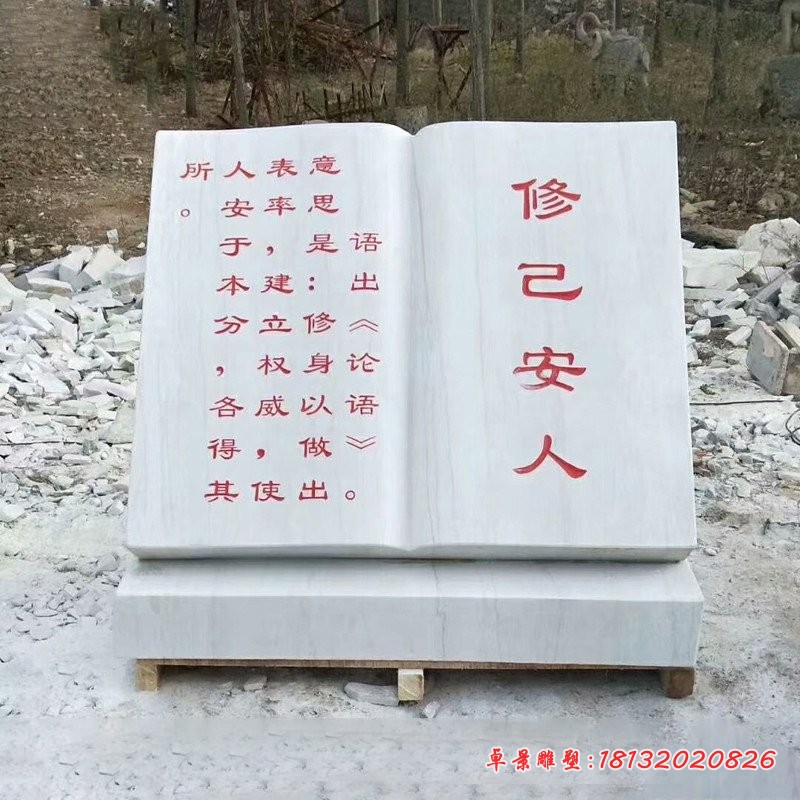 修己安人
语出《论语》。
意思是：修身以做出
表率，建立权威，使
人安于本分，各得其
所。
卓景雕塑:18132020826